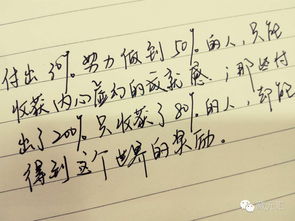 付出30%努力做到50%的人，只能
收获内心虚幻的成就感；那些付
出了200%只收获了80%的人，却能
得到这个世界的奖励。